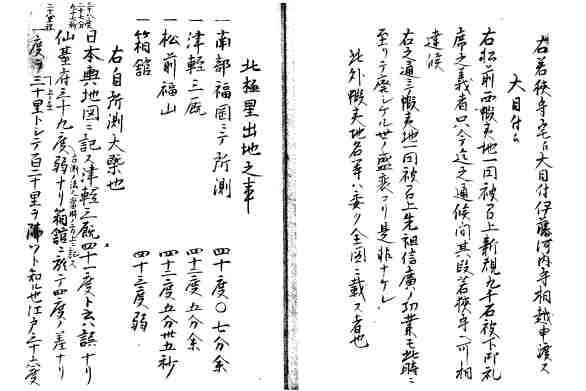 右若狭守宅江大目付伊藤河内守相越申渡ス
大目付江
右松前西蝦夷地一円被召上新規九千石被下御礼
席之義者只今迄之通候間其段若狭守江可相
達候
右之通ニテ蝦夷地一円被召上先祖信廣ノ功業モ此時ニ
至リテ廃シケル世ノ盛衰コソ是非ナケレ
此外蝦夷地名等ハ委ク全図ニ載ス者也
北極星出地之事
一南部福岡ニテ所測 四十度〇七分余
一津軽三厩 四十一度五分余
一松前福山 四十一度五分卅五秒
一箱舘 四十二度弱
右自所測大槩也
日本輿地図ニ記ス津軽三厩四十一度ト云ハ誤ナリ
仙臺府三十九度弱ナリ箱舘ニ於テ四度ノ差ナリ
一度ヲ三十里トシテ百二十里ヲ隔ツト知ル也江戸三十六度